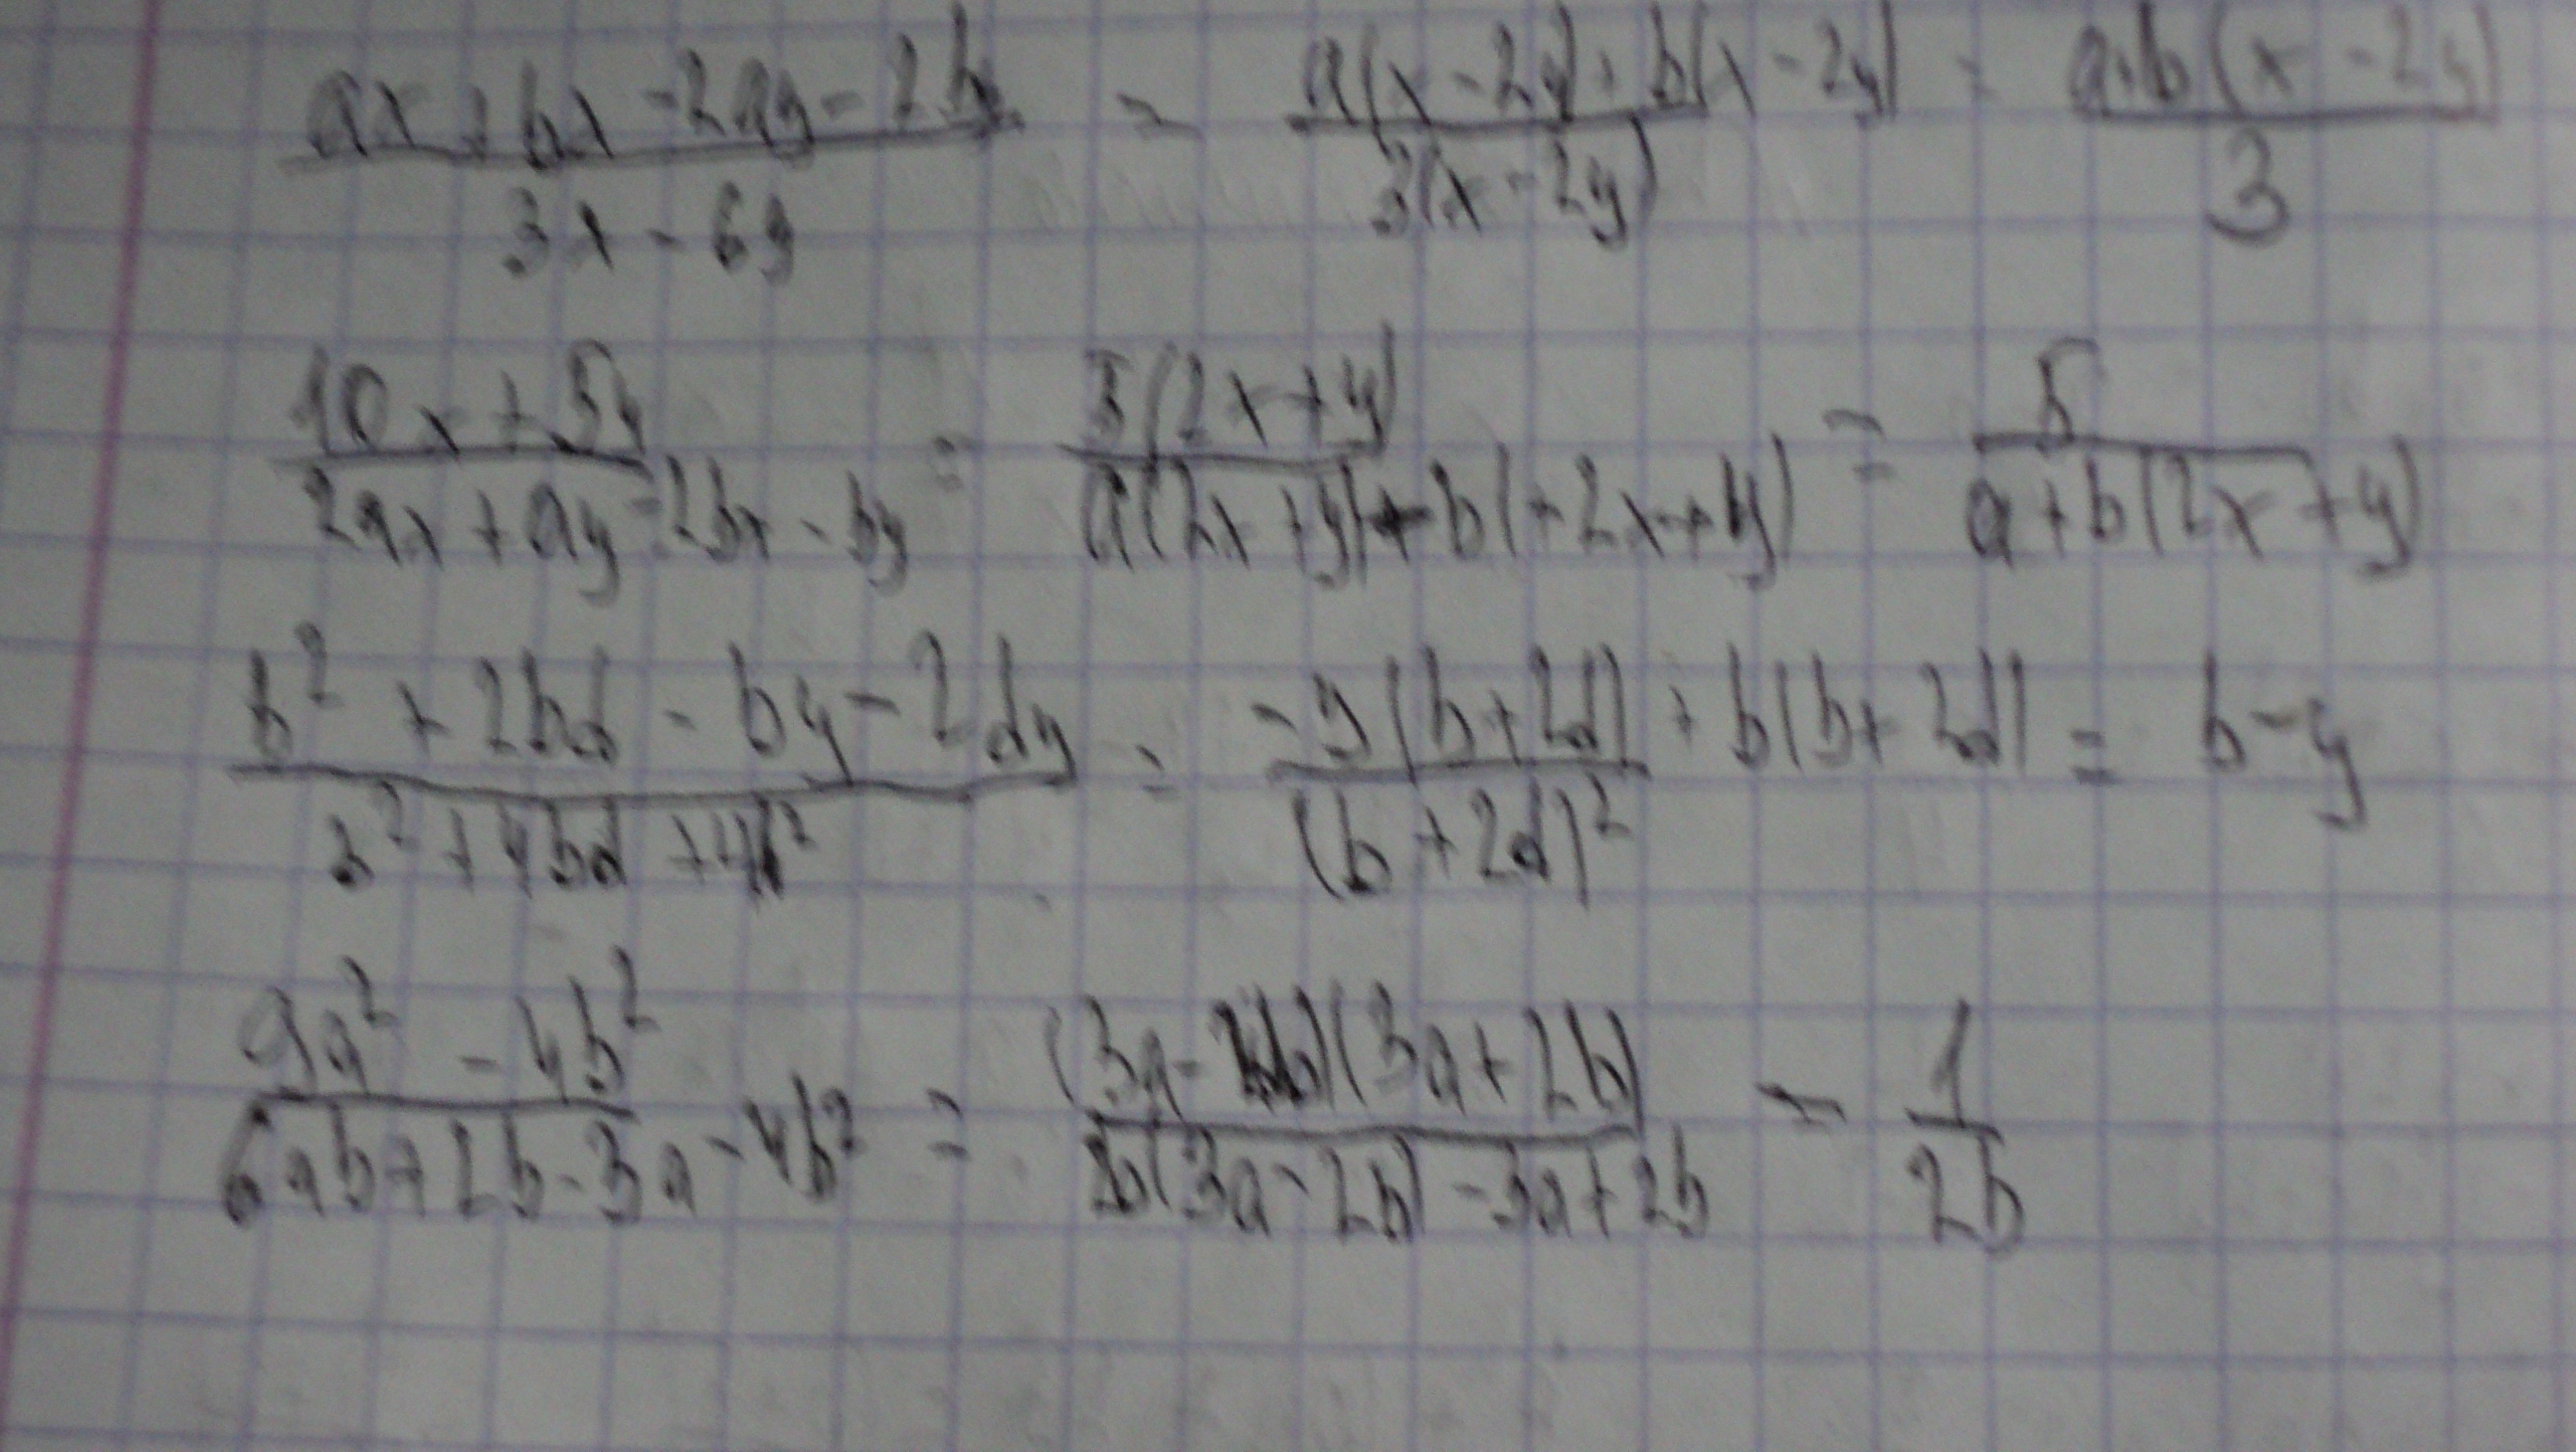 (ax + bx - 2ay - 2by)/(3x - 6y) = (a(x - 2y) + b(x - 2y))/(3(x - 2y)) = (a+b(x - 2y))/3
(10x + 5y)/(2ax + ay - 2bx - by) = (5(2x + y))/(a(2x + y) - b(+2x + y)) = 5/(a + b(2x + y))
(b² + 2bd - by - 2dy)/(b² + 4bd + 4d²) = (-y(b + 2d) + b(b + 2d))/((b + 2d)²) = b - y
(9a² - 4b²)/(6ab + 2b - 3a - 4b²) = ((3a - 2b)(3a + 2b))/(2b(3a - 2b) - 3a + 2b) = 1/2b